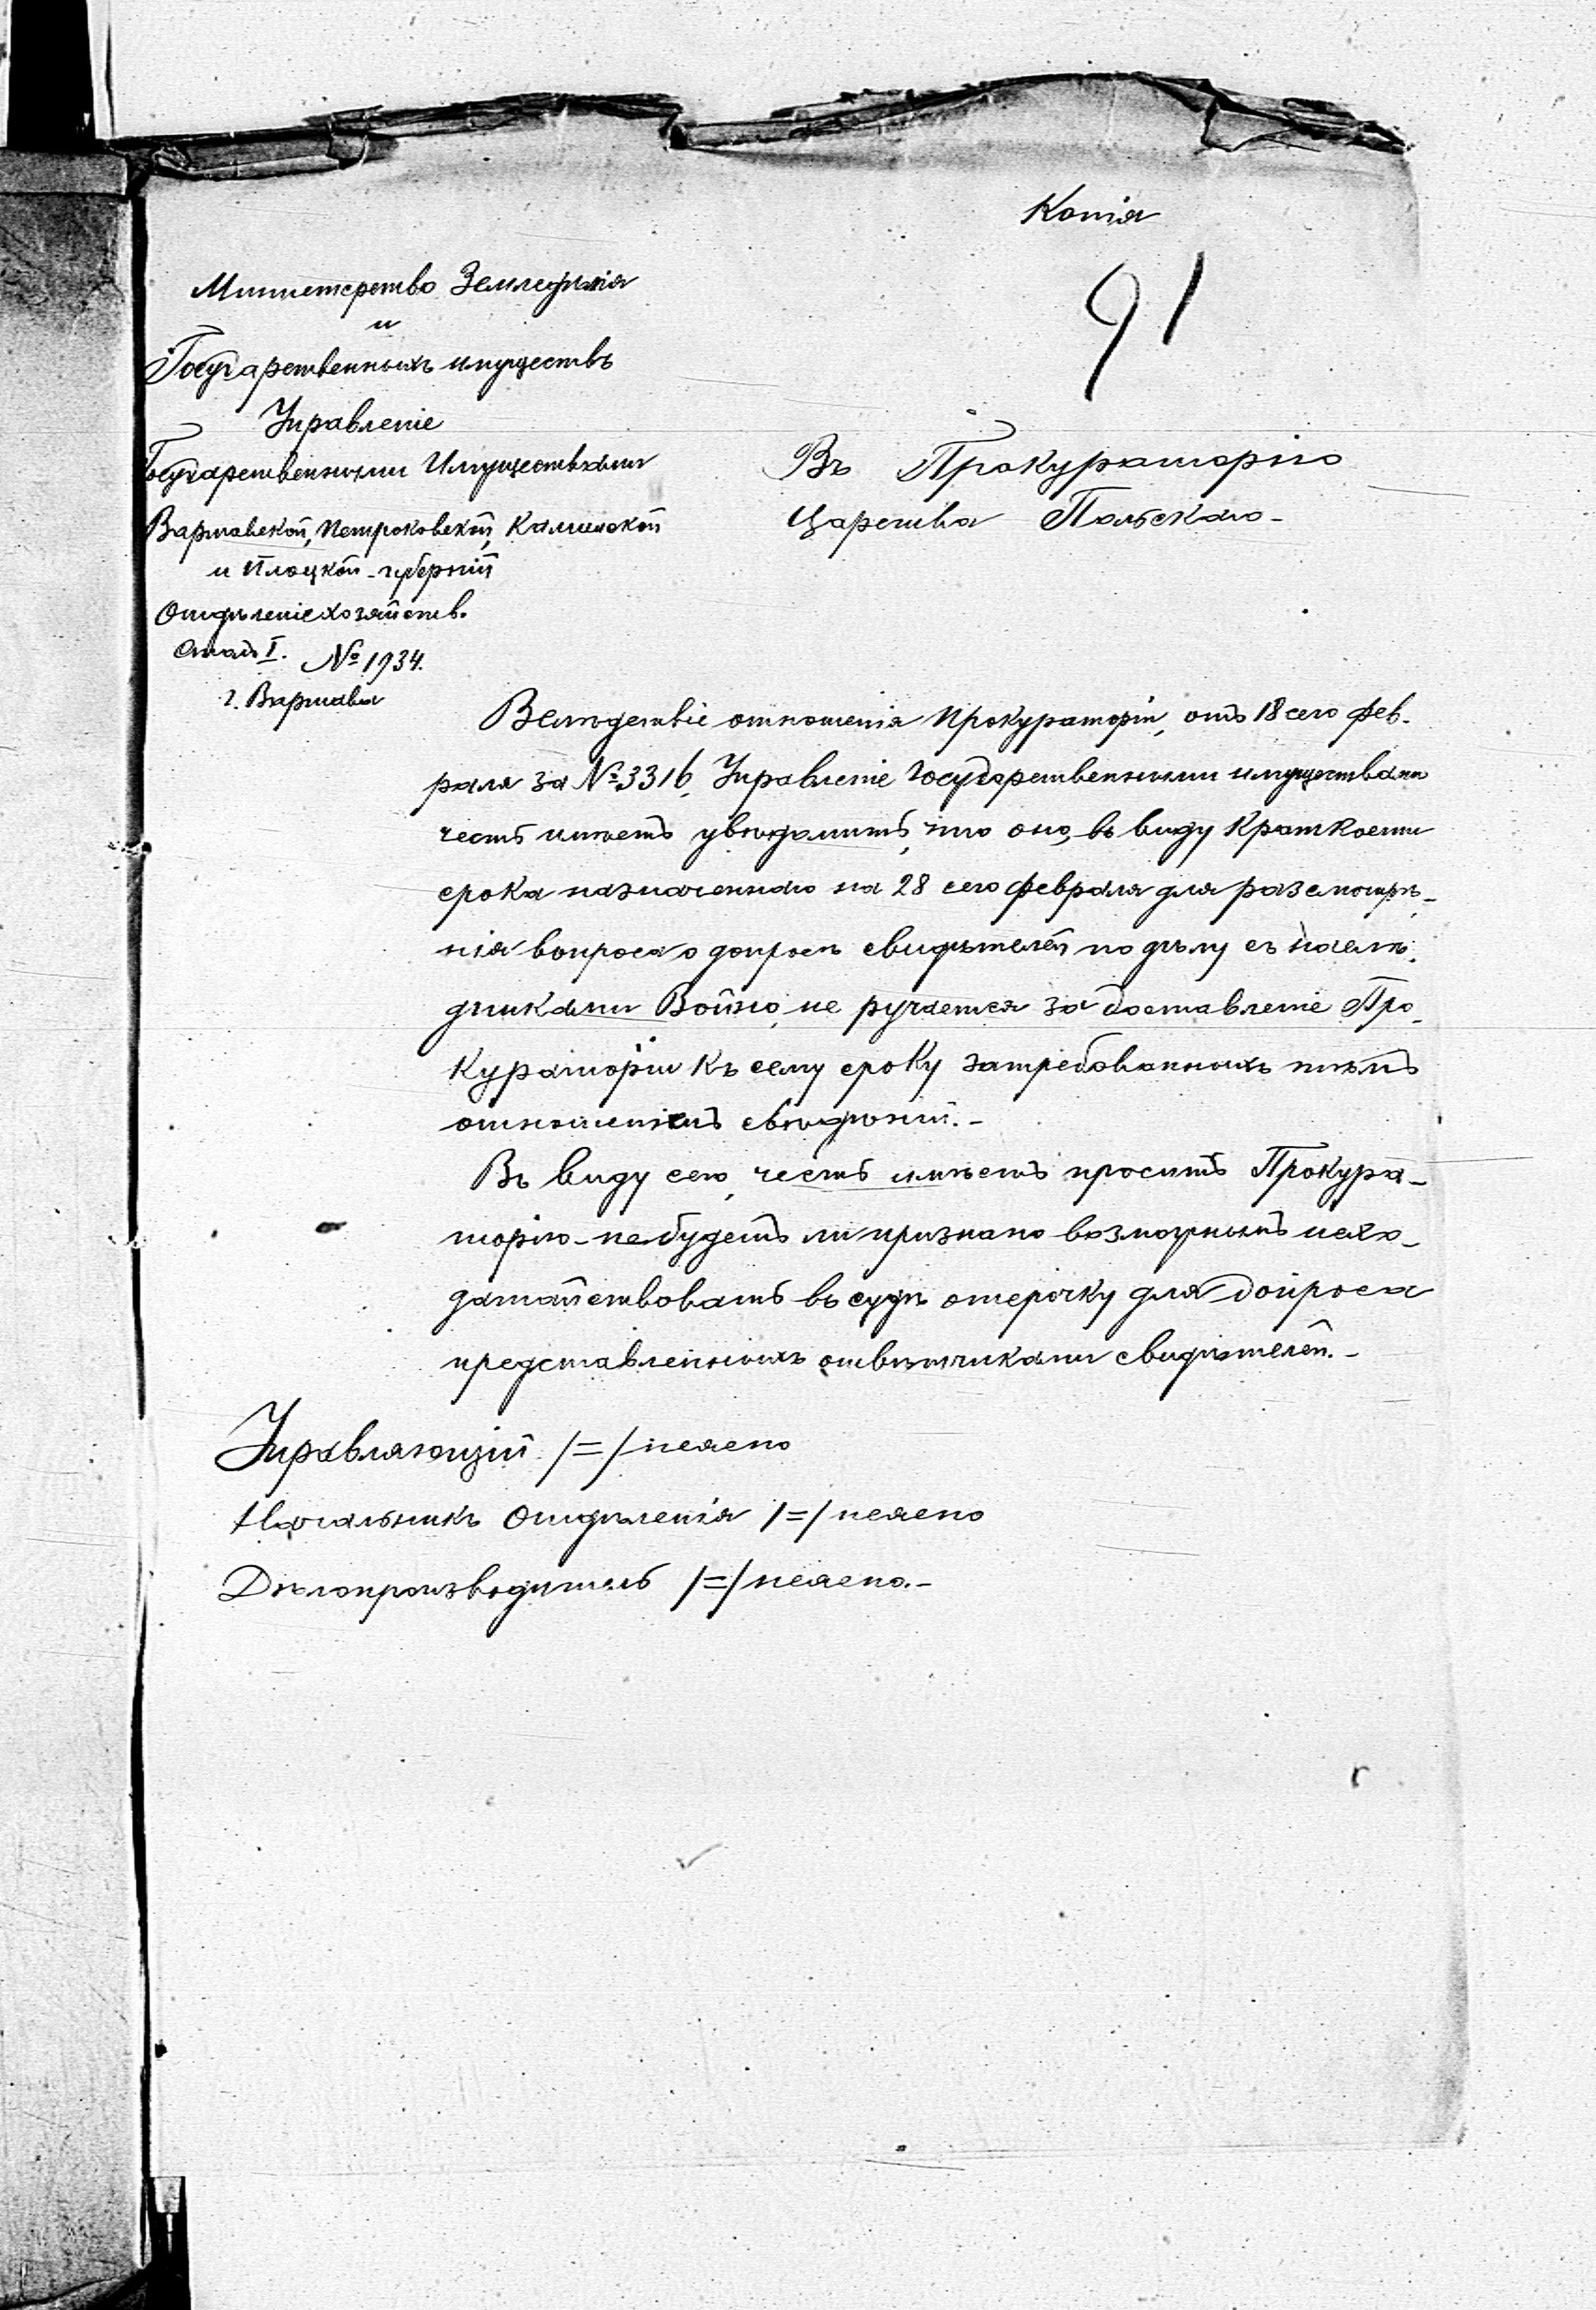 Копія
91
Министерство Земледѣлія
и
Государственныхъ имуществъ
Управленіе
Государственными Имуществами
Варшавской, Петроковской, Калишской
и Плоцкой губерній
Отдѣленіе хозяйств.
Столъ I. № 1934.
г. Варшава
Въ Прокураторію
Царства Польскаго -
Вслѣдствіе отношенія Прокураторіи, отъ 18 сего фев-
раля за № 3316, Управленіе Государственными имуществами
честь имѣетъ увѣдомить, что оно, въ виду краткости
срока назначеннаго на 28 сего февраля для разсмотрѣ-
нія вопроса о допросѣ свидѣтелей по дѣлу съ наслѣ-
дниками Войно, не ручается за доставленіе Про-
кураторіи къ сему сроку затребованныхъ тѣмъ
отношеніемъ свѣдѣній. -
Въ виду сего, честь имѣетъ просить Прокура-
торію - не будетъ ли признано возможнымъ исхо-
датайствовать въ судѣ отсрочку для допроса
представленныхъ отвѣтчиками свидѣтелей. -
Управляющій /=/ неясно
Начальникъ Отдѣленія /=/ неясно
Дѣлопроизводитель /=/ неясно. -